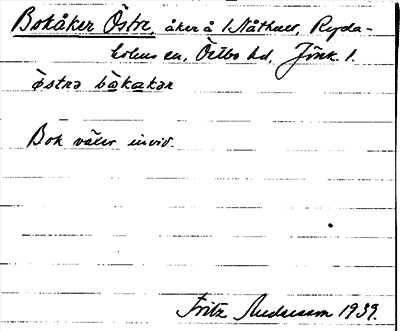 Bokåker Östre, åker å 1 Nåthult, Ryda-
holms sn, Östbo hd, Jönk. l.
östrə bòkakər
Bok växer inviv.
Fritz Andersson 1939.